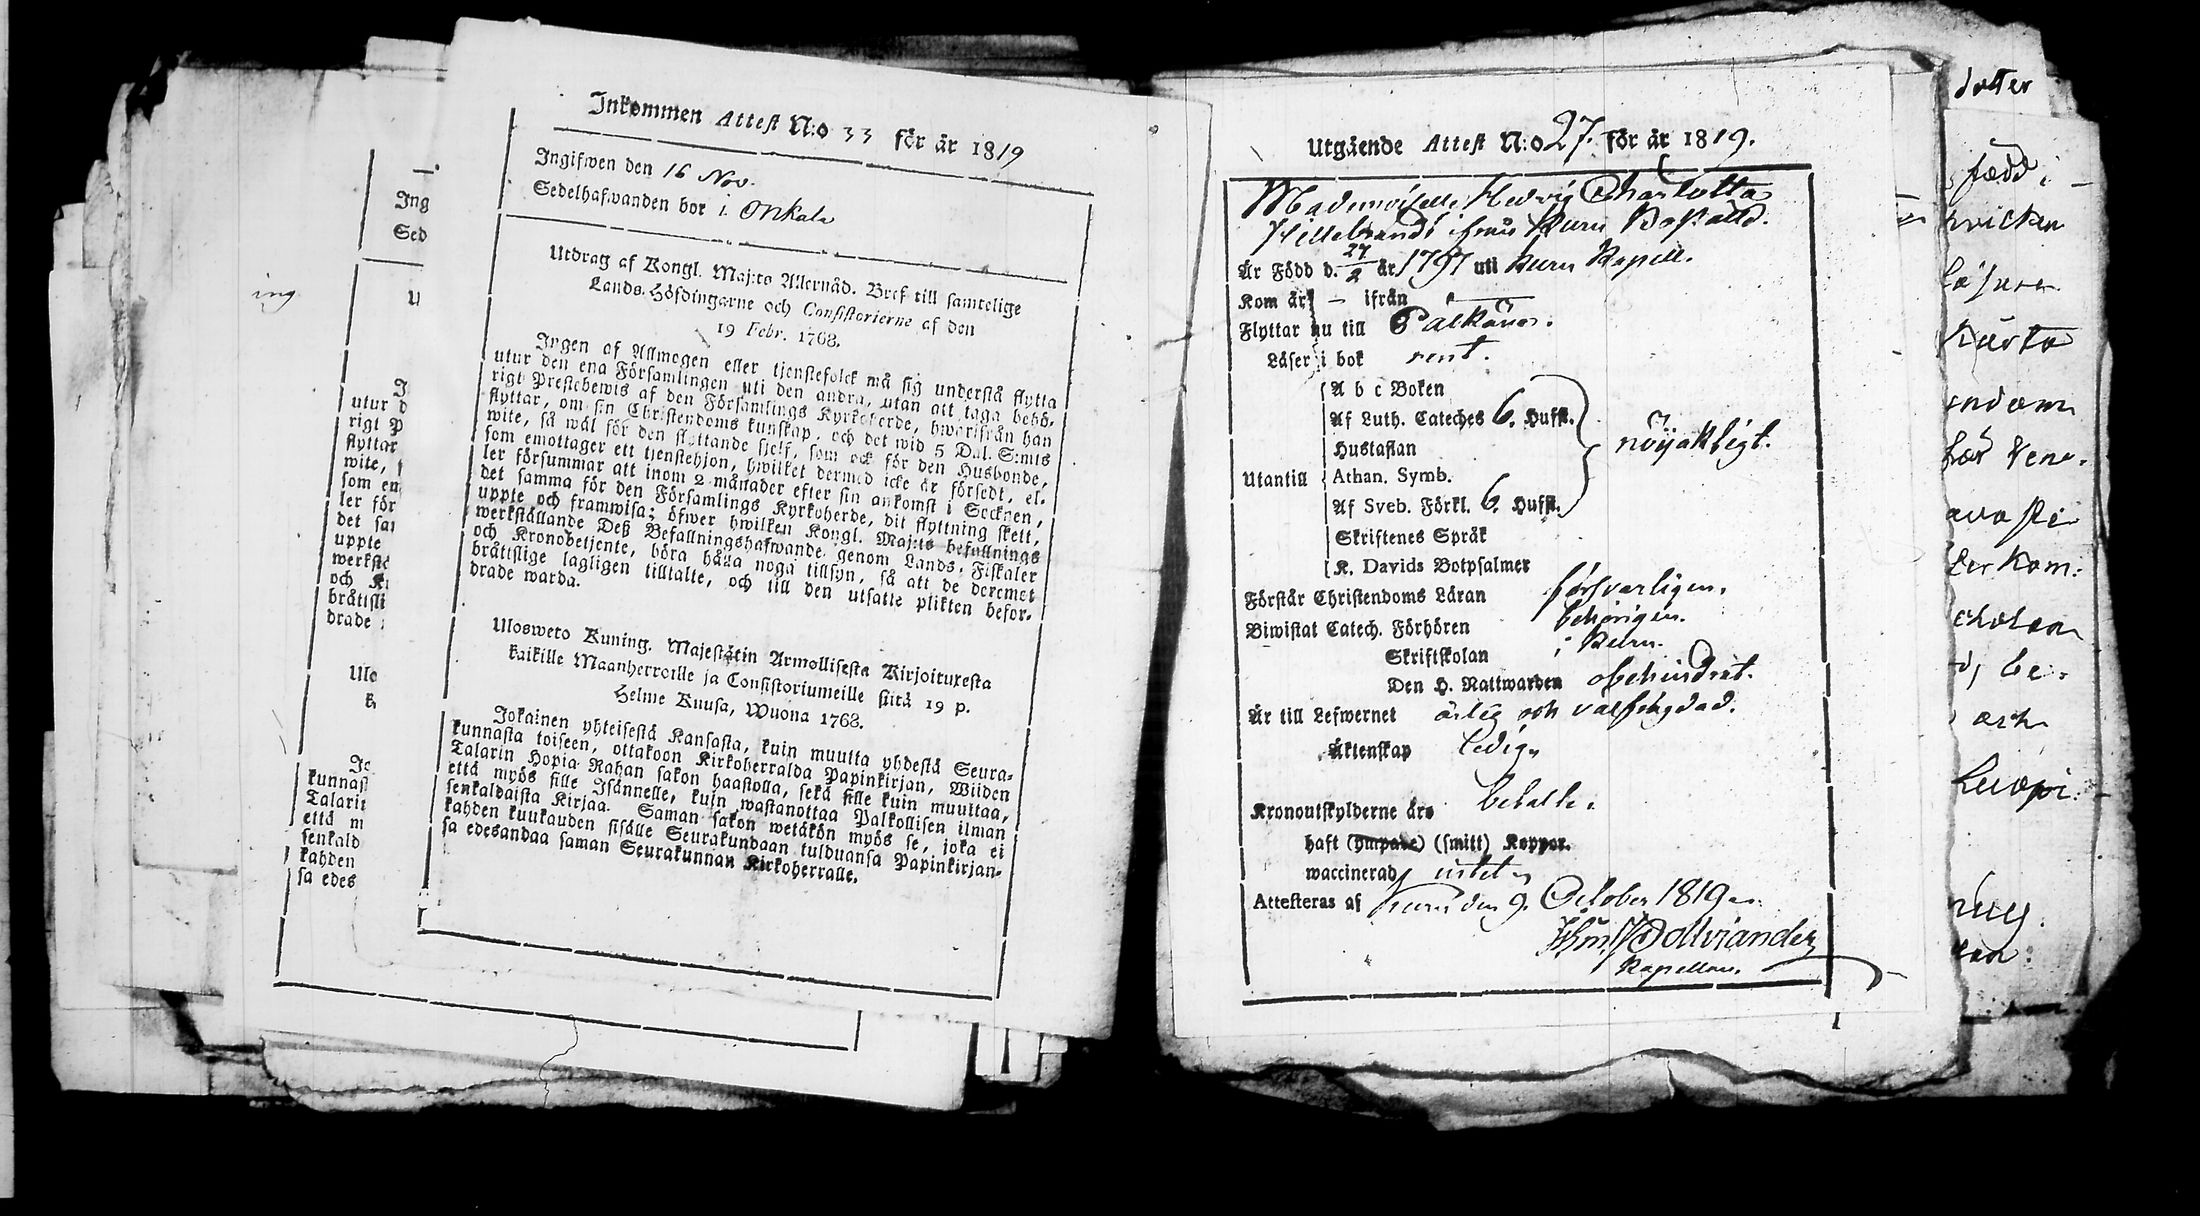 Inkommen Attest N:o 33 för år 1819
Ingifwen den 16 Nov.
Sedelhafwanden bor i Onkala
Utdrag af Kongl. Maj:ts Allernåd. Bref till samtelige
Lands-Höfdingarne och Consistorierne af den
19 Febr. 1768.
Ingen af Allmogen eller tjenstefolck må sig understå flytta
utur den ena Församlingen uti den andra, utan att taga behö-
rigt Prestebewis af den Församlings Kyrkoherde, hwarifrån han
flyttar, om sin Christendoms kunskap, och det wid 5 Dal. S:mts
wite, så wäl för den flyttande sjelf, som ock för den Husbonde,
som emottager ett tjenstehjon, hwilket dermed icke är försedt, el-
ler försummar att inom 2 månader efter sin ankomst i Socknen,
det samma för den Församlings Kyrkoherde, dit flyttning skett,
uppte och framwisa; öfwer hwilken Kongl. Maj:ts befallnings
werkställande Deß Befallningshafwande genom Lands-Fiskaler
och Kronobetjente, böra hålla noga tillsyn, så att de deremot
bråttslige lagligen tilltalte, och till den utsatte plikten befor-
drade warda.
Ulosweto Kuning. Majestätin Armollisesta Kirjoituxesta
kaikille Maanherroille ja Consistoriumeille siitä 19 p.
Helme Kuusa, Wuona 1768.
Jokainen yhteisestä Kansasta, kuin muutta yhdestä Seura-
kunnasta toiseen, ottakoon Kirkoherralda Papinkirjan, Wiiden
Talarin Hopia Rahan sakon haastolla, sekä sille kuin muuttaa,
että myös sille Isännelle, kuin wastanottaa Palkollisen ilman
senkaldaista Kirjaa. Saman sakon wetäkön myös se, joka ei
kahden kuukauden sisälle Seurakundaan tulduansa Papinkirjan-
sa edesandaa saman Seurakunnan Kirkoherralle.
ing
Ing
Sed
U
I
utur d
rigt P
flyttar
wite,
som en
ler för
det sa
uppte
werkstä
och Kr
bråttsli
drade
Ulo
k
Jo
kunnas
Talarin
että m
senkald
kahden
sa edes
Utgående Attest N:o 27. för år 1819.
Mademoiselle Hedvig Charlotta
Hillebrandt ifrån Kuru Boställe.
År Född d. 27/2 år 1797 uti Kuru Kapell.
Kom år — ifrån —
Flyttar nu till Pälkäne.
Läser i bok rent.
A b c Boken
Af Luth. Cateches 6. Hufst.
Hustaflan
nöjaktigt.
Utantill
Athan. Symb.
Af Sveb. Förkl. 6. Hufst.
Skriftenes Språk
K. Davids Botpsalmer
Förstår Christendoms Läran försvarligen.
Biwistat Catech. Förhören behörigen.
Skriftskolan i Kuru.
Den H. Nattwarden obehindrat.
Är till Lefwernet ärlig och välfrejdad.
Äktenskap ledig.
Kronoutskylderne äro betalte.
haft (ympade) (smitt) Koppor.
waccinerad intet
Attesteras af Kuru den 9. October 1819
Kapellan.
dotter
född i
hvilken
endom
och